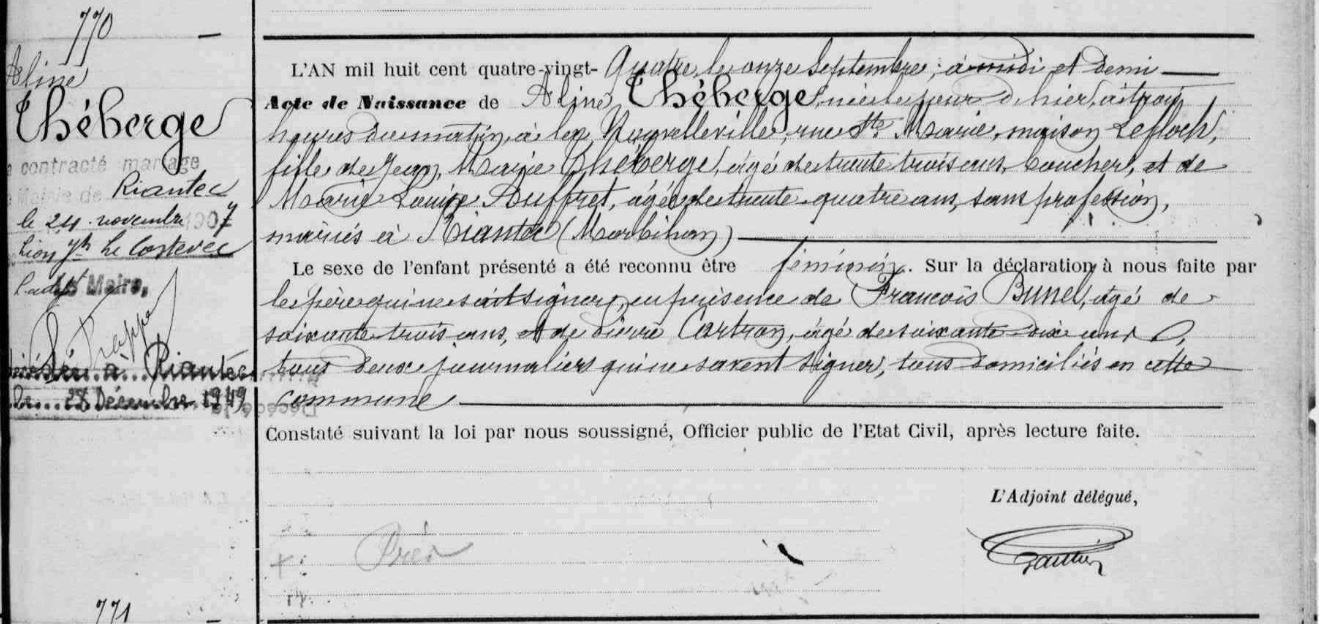 770
Aline
Théberge
a contracté mariage
Mairie de Riantec
le 24 novembre 1907
Le Maire,
Décédée à Riantec
le 28 Décembre 1949
L'AN mil huit cent quatre-vingt- Quatre, le onze Septembre, à midi et demi
Acte de Naissance de Aline Théberge, née le jour d'hier, à trois
heures du matin, à la Nouvelleville, rue Ste Marie, maison Lefloch,
fille de Jean Marie Théberge, âgé de trente trois ans, boucher, et de
Marie Louise Auffret, âgée de trente quatre ans, sans profession,
mariés à Riantec (Morbihan)
Le sexe de l'enfant présenté a été reconnu être féminin. Sur la déclaration à nous faite par
le père qui ne sait signer, en présence de François Bunel, âgé de
soixante trois ans, et de Pierre Cartron, âgé de soixante dix ans
tous deux journaliers qui ne savent signer, tous domiciliés en cette
commune
Constaté suivant la loi par nous soussigné, Officier public de l'Etat Civil, après lecture faite.
L'Adjoint délégué,
771